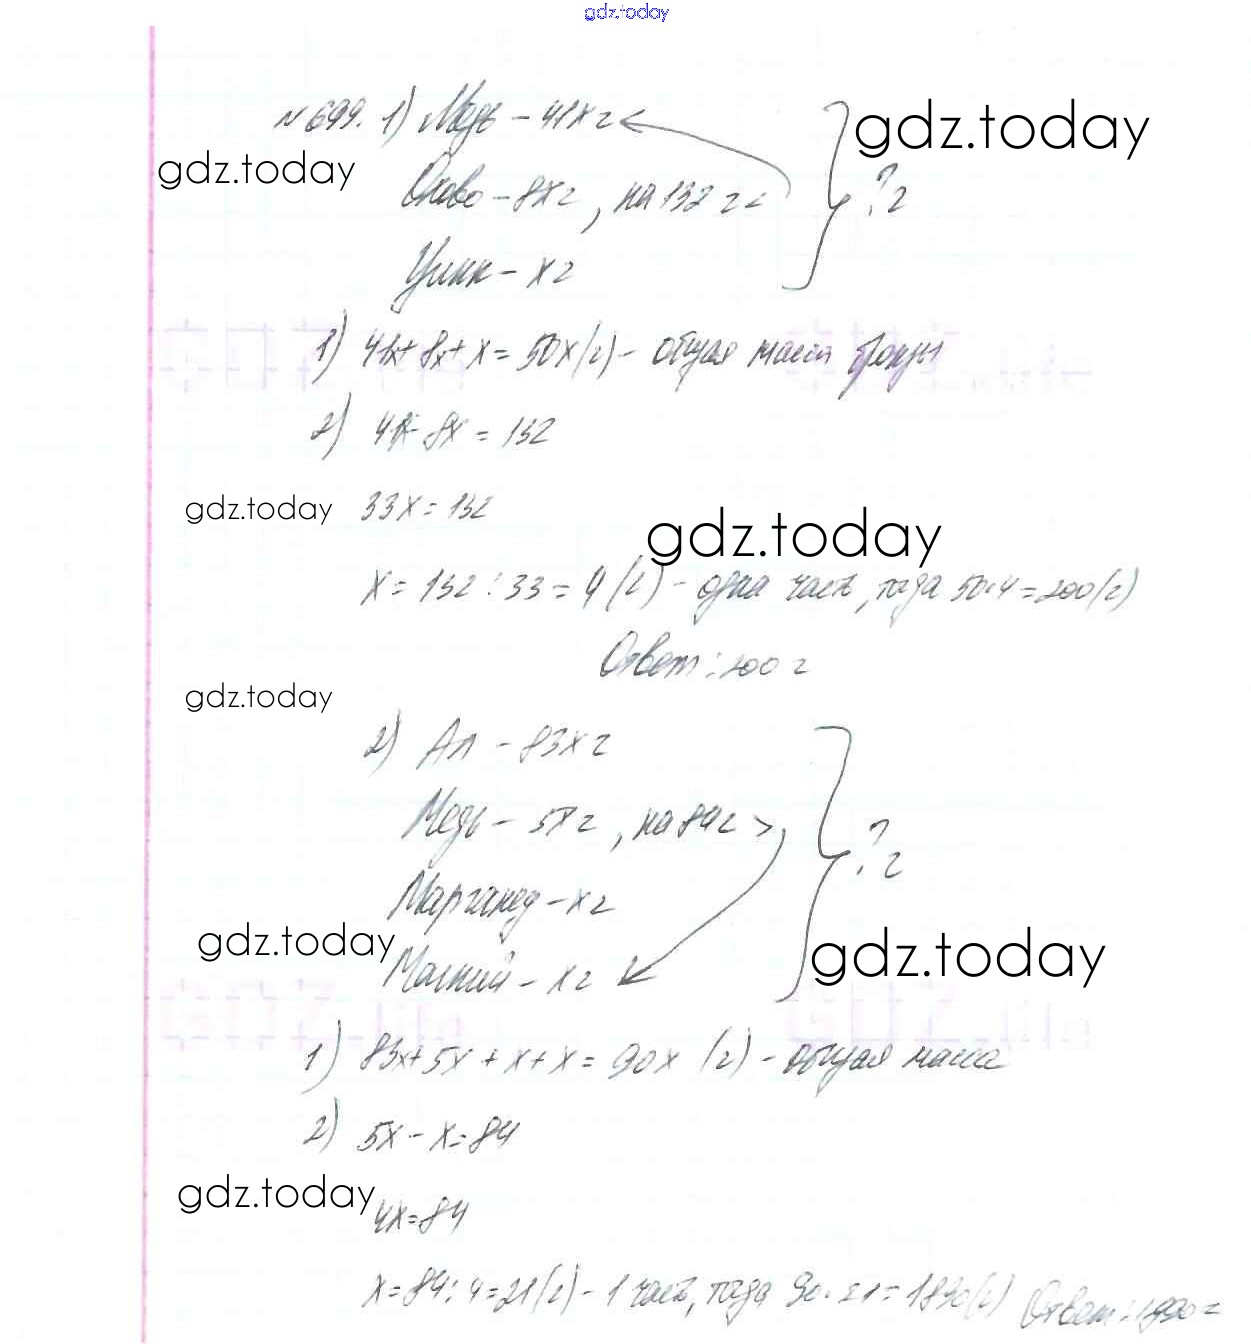 gdz.today
№ 699. 1) Медь - 41x г
gdz.today
gdz.today
Олово - 8x г, на 132 г <
? г
Цинк - x г
1) 41x + 8x + x = 50x (г) - общая масса бронзы
2) 41x - 8x = 132
33x = 132
gdz.today
gdz.today
x = 132 : 33 = 4 (г) - одна часть, тогда 50·4 = 200 (г)
Ответ: 200 г
gdz.today
2) Ал - 83x г
Медь - 5x г, на 84 г >
? г
Марганец - x г
gdz.today
gdz.today
Магний - x г
1) 83x + 5x + x + x = 90x (г) - общая масса
2) 5x - x = 84
gdz.today
4x = 84
x = 84 : 4 = 21 (г) - 1 часть, тогда 90 · 21 = 1890 (г) Ответ: 1890 г